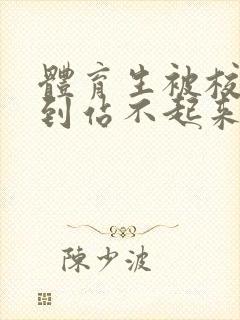 體育生被校
到佔不起来
陳少波